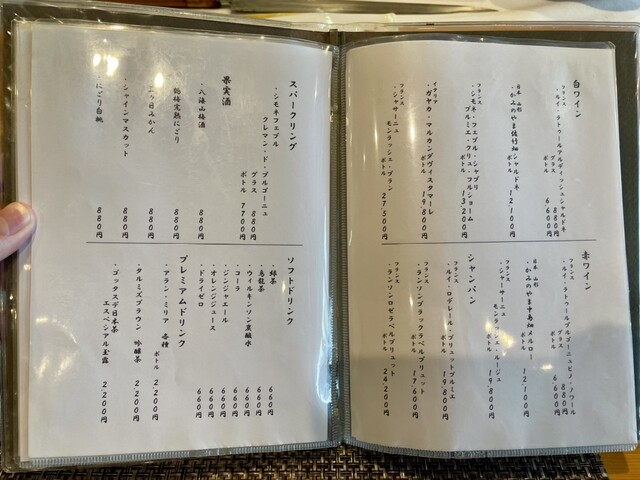 白ワイン
フランス
・ルイ・ラトゥールアルディッシュシャルドネ
グラス 880円
ボトル 6,600円
日本 山形
・かみのやま佐竹畑シャルドネ
ボトル 12,100円
フランス
・シモネ・フェブル・シャブリ
プルミエ・クリュ・フルショーム
ボトル 13,200円
イタリア
・ガヤカ・マルカンダヴィスタマーレ
ボトル 19,800円
フランス
・シャサーニュ
モンラッシェ・ブラン
ボトル 27,500円
赤ワイン
フランス
・ルイ・ラトゥールブルゴーニュピノ・ノワール
グラス 880円
ボトル 6,600円
日本 山形
・かみのやま中島畑メルロー
ボトル 12,100円
フランス
・シャーサーニュ
モンラッシェ・ルージュ
ボトル 19,800円
シャンパン
フランス
・ルイ・ロデレール・ブリュットプルミエ
ボトル 19,800円
フランス
・ランソンブラックラベルブリュット
ボトル 17,600円
フランス
・ランソンロゼラベルブリュット
ボトル 24,200円
スパークリング
・シモネフェブル
クレマン・ド・ブルゴーニュ
グラス 880円
ボトル 7,700円
果実酒
・八海山梅酒 880円
・鶴梅完熟にごり 880円
ヶ日みかん 880円
・シャインマスカット 880円
・にごり白桃 880円
ソフトドリンク
・緑茶 660円
・烏龍茶 660円
・ウィルキンソン炭酸水 660円
・コーラ 660円
・ジンジャエール 660円
・オレンジジュース 660円
・ドライゼロ 660円
プレミアムドリンク
・アラン・ミリア 各種
ボトル 2,200円
・タルミズブラウン 吟醸茶 2,200円
・ゴッタスデ日本茶
エスペシアル玉露 2,200円